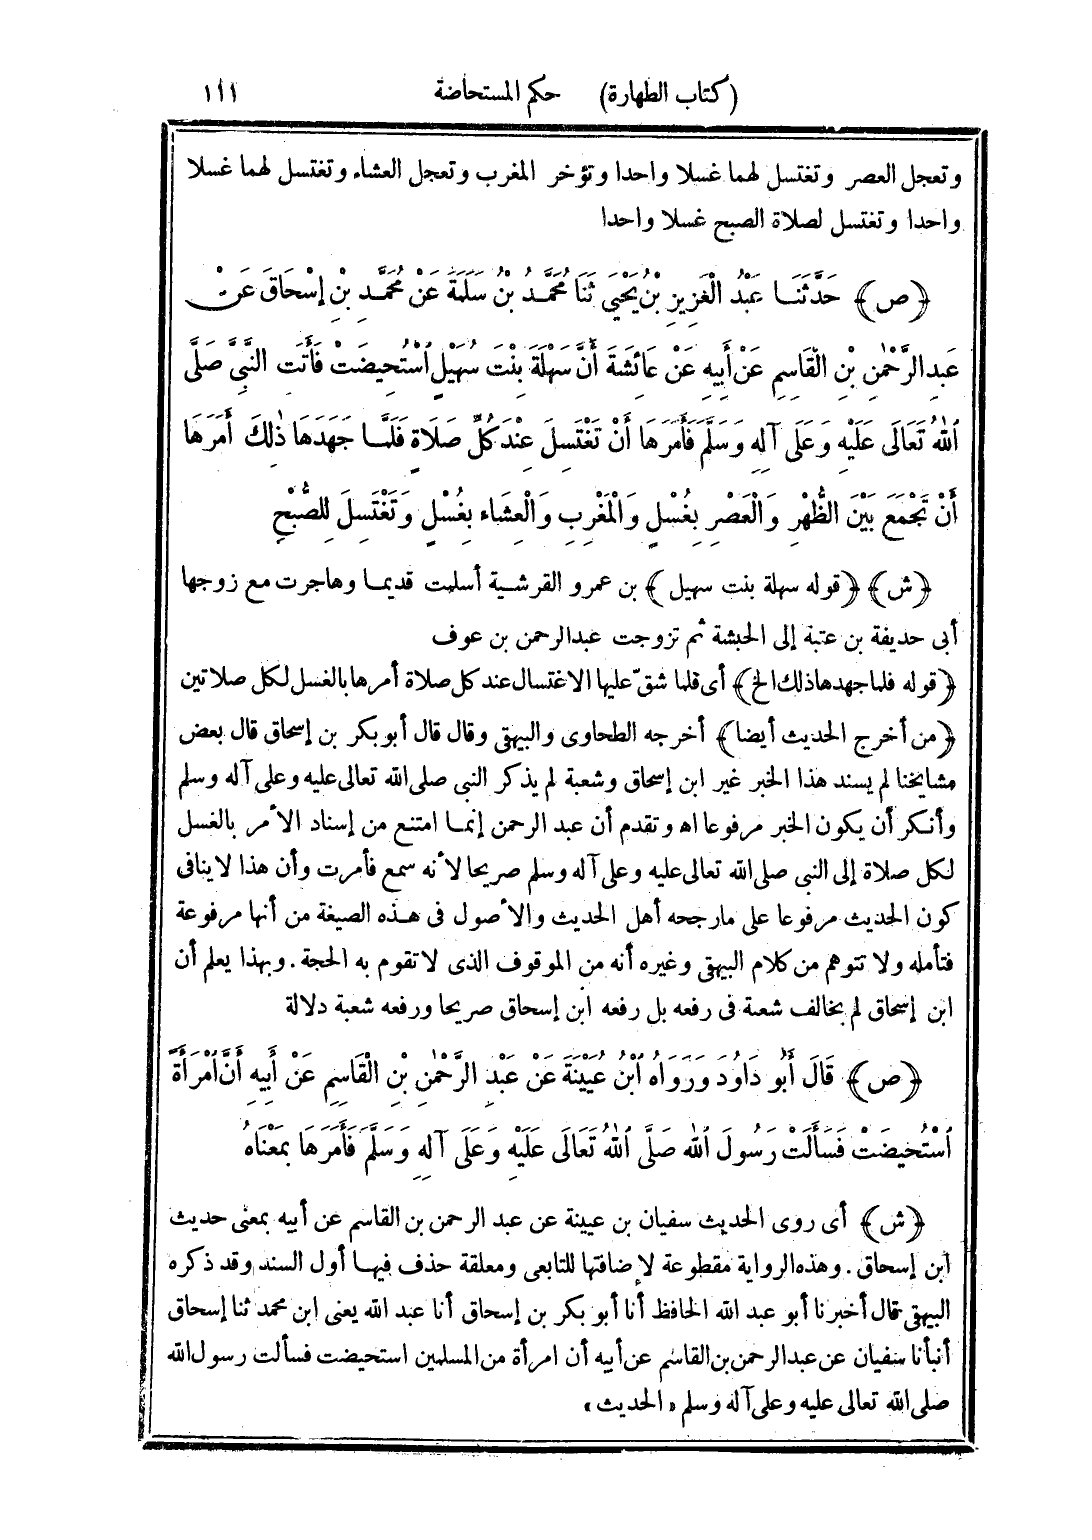 (كتاب الطهارة) حكم المستحاضة ١١١
وتعجل العصر وتغتسل لهما غسلا واحدا وتؤخر المغرب وتعجل العشاء وتغتسل لهما غسلا
واحدا وتغتسل لصلاة الصبح غسلا واحدا
﴿ص﴾ حَدَّثَنَا عَبْدُ الْعَزِيزِ بْنُ يَحْيَى ثَنَا مُحَمَّدُ بْنُ سَلَمَةَ عَنْ مُحَمَّدِ بْنِ إِسْحَاقَ عَنْ
عَبدِ الرَّحْمٰنِ بْنِ الْقَاسِمِ عَنْ أَبِيهِ عَنْ عَائِشَةَ أَنَّ سَهْلَةَ بِنْتَ سُهَيْلٍ اُسْتُحِيضَتْ فَأَتَت النَّبِيَّ صَلَّى
اللهُ تَعَالَى عَلَيْهِ وَعَلَى آلِهِ وَسَلَّمَ فَأَمَرَهَا أَنْ تَغْتَسِلَ عِنْدَ كُلِّ صَلَاةٍ فَلَمَّا جَهَدَهَا ذٰلِكَ أَمَرَهَا
أَنْ تَجْمَعَ بَيْنَ الظُّهْرِ وَالْعَصْرِ بِغُسْلٍ وَالْمَغْرِبِ وَالْعِشَاءِ بِغُسْلٍ وَتَغْتَسِلَ لِلصُّبْحِ
﴿ش﴾ ﴿قوله سهلة بنت سهيل﴾ بن عمرو القرشية أسلمت قديما وهاجرت مع زوجها
أبى حذيفة بن عتبة إلى الحبشة ثم تزوجت عبدالرحمن بن عوف
﴿قوله فلما جهدها ذلك الخ﴾ أى فلما شقّ عليها الاغتسال عند كل صلاة أمرها بالغسل لكل صلاتين
﴿من أخرج الحديث أيضا﴾ أخرجه الطحاوى والبيهقى وقال قال أبو بكر بن إسحاق قال بعض
مشايخنا لم يسند هذا الخبر غير ابن إسحاق وشعبة لم يذكر النبى صلى الله تعالى عليه وعلى آله وسلم
وأنكر أن يكون الخبر مرفوعا اه وتقدم أن عبد الرحمن إنما امتنع من إسناد الأمر بالغسل
لكل صلاة إلى النبى صلى الله تعالى عليه وعلى آله وسلم صريحا لأنه سمع فأمرت وأن هذا لا ينافى
كون الحديث مرفوعا على ما رجحه أهل الحديث والأصول فى هذه الصيغة من أنها مرفوعة
فتأمله ولا تتوهم من كلام البيهقى وغيره أنه من الموقوف الذى لا تقوم به الحجة . وبهذا يعلم أن
ابن إسحاق لم يخالف شعبة فى رفعه بل رفعه ابن إسحاق صريحا ورفعه شعبة دلالة
﴿ص﴾ قَالَ أَبُو دَاوُدَ وَرَوَاهُ اُبْنُ عُيَيْنَةَ عَنْ عَبْدِ الرَّحْمٰنِ بْنِ الْقَاسِمِ عَنْ أَبِيهِ أَنَّ اُمْرَأَةً
اُسْتُحِيضَتْ فَسَأَلَتْ رَسُولَ اللهِ صَلَّى اللهُ تَعَالَى عَلَيْهِ وَعَلَى آلِهِ وَسَلَّمَ فَأَمَرَهَا بِمَعْنَاهُ
﴿ش﴾ أى روى الحديث سفيان بن عيينة عن عبد الرحمن بن القاسم عن أبيه بمعنى حديث
ابن إسحاق . وهذه الرواية مقطوعة لإضافتها للتابعى ومعلقة حذف فيها أول السند وقد ذكره
البيهقى قال أخبرنا أبو عبد الله الحافظ أنا أبو بكر بن إسحاق أنا عبد الله يعنى ابن محمد ثنا إسحاق
أنبأنا سفيان عن عبدالرحمن بن القاسم عن أبيه أن امرأة من المسلمين استحيضت فسألت رسول الله
صلى الله تعالى عليه وعلى آله وسلم «الحديث»